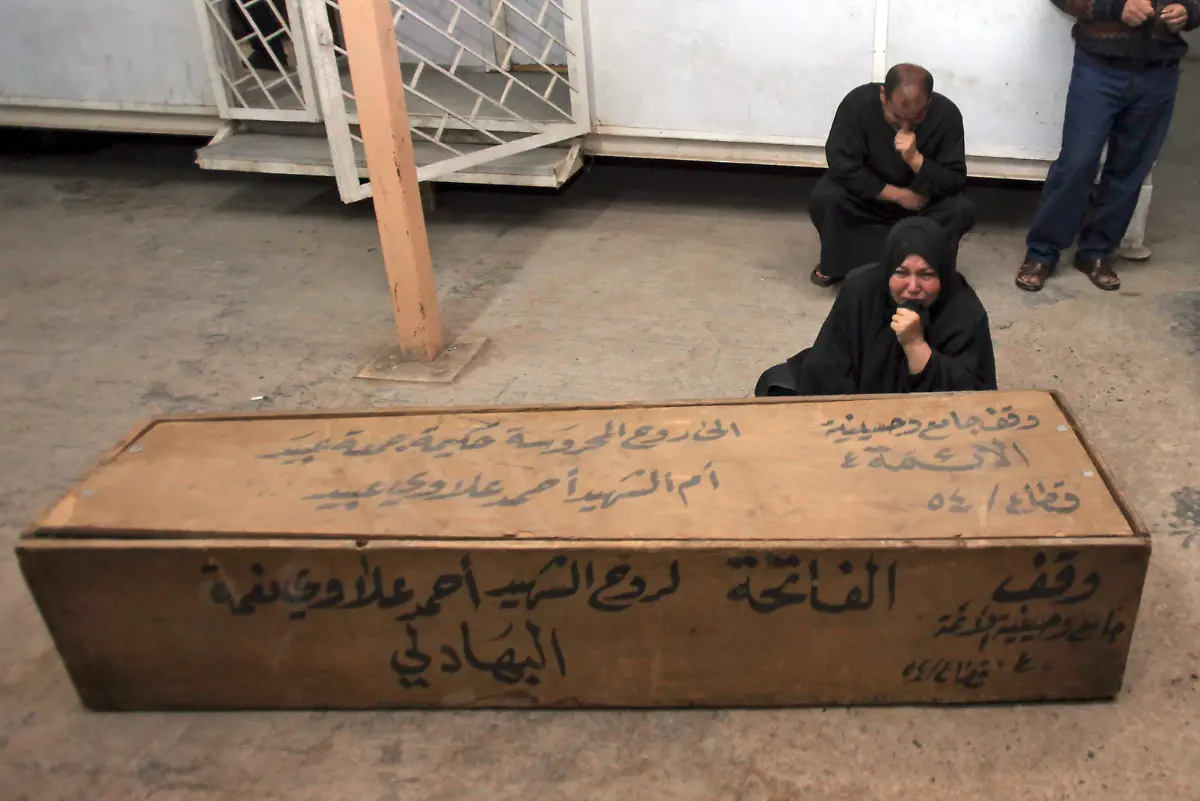 وقف جامع وحسينية
الأئمة ٤
قطاع / ٥٤
الى روح المحروسة حكيمة جمعة عبيد
أم الشهيد أحمد علاوي عبيد
وقف
جامع وحسينية الأئمة
٤
قطاع / ٥٤
الفاتحة
لروح الشهيد أحمد علاوي نعمة
البهادلي